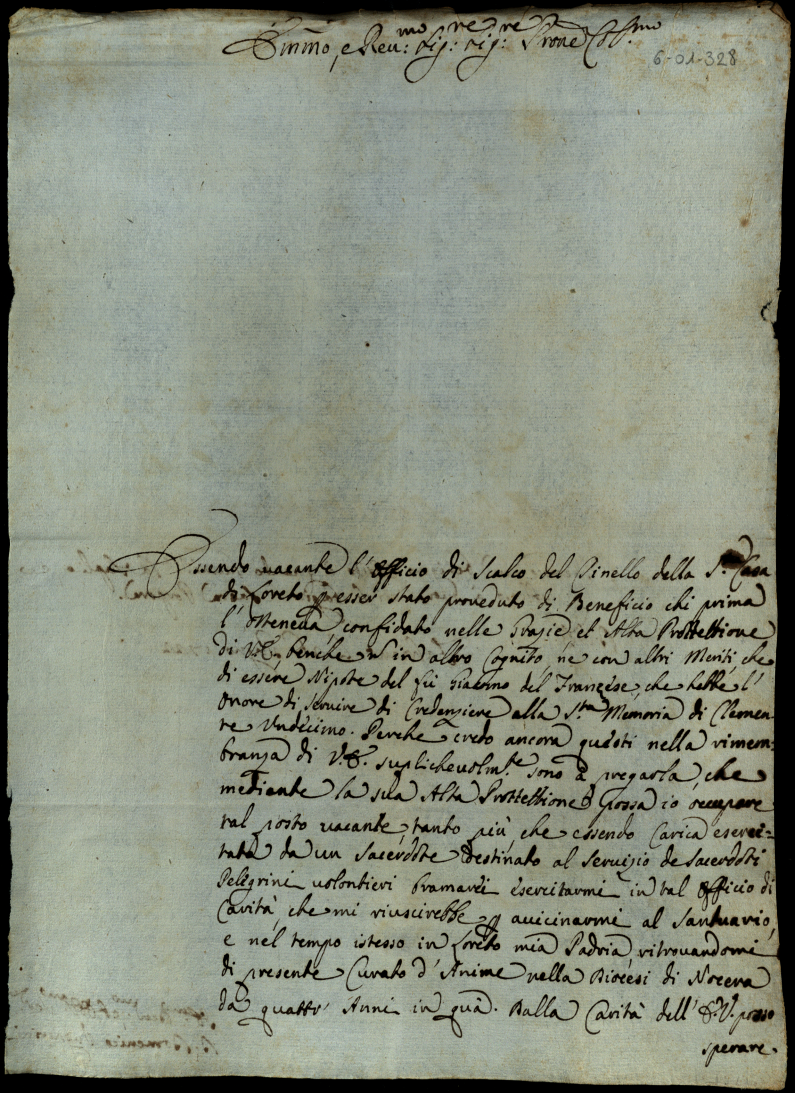 Emin̄o, e Reu:mo Sig:re Sig:re Prone Col.mo
6-01-328
Essendo uacante l'officio di Scalco del Pinello della S.a Casa
di Loreto p esser stato proueduto di Beneficio chi prima
l'otteneua, confidato nelle Grazie et Alta Prottettione
di V.E. benche in altro Cognito, ne con altri Meriti, che
di essere Nipote del fù Giacomo del Franzese, che hebbe l'
onore di seruire di Credenziere alla S.ta Memoria di Clemen-
te Undecimo. Perche credo ancora guidoti nella rimem:
branza di V.E. suplicheuolm.te sono à pregarla, che
mediante la sua Alta Prottettione possa io occupare
tal posto uacante, tanto più, che essendo Carica eserci=
tata da un Sacerdote destinato al seruizio de Sacerdoti
Pelegrini uolontieri bramarei esercitarmi in tal officio di
Carità, che mi riuscirebbe p auicinarmi al Santuario,
e nel tempo istesso in Loreto mia Padria, ritrouandomi
di presente Curato d'Anime nella Diocesi di Nocera
da quattr' Anni in quà. Dalla Carità dell' E.V. posso
sperare.